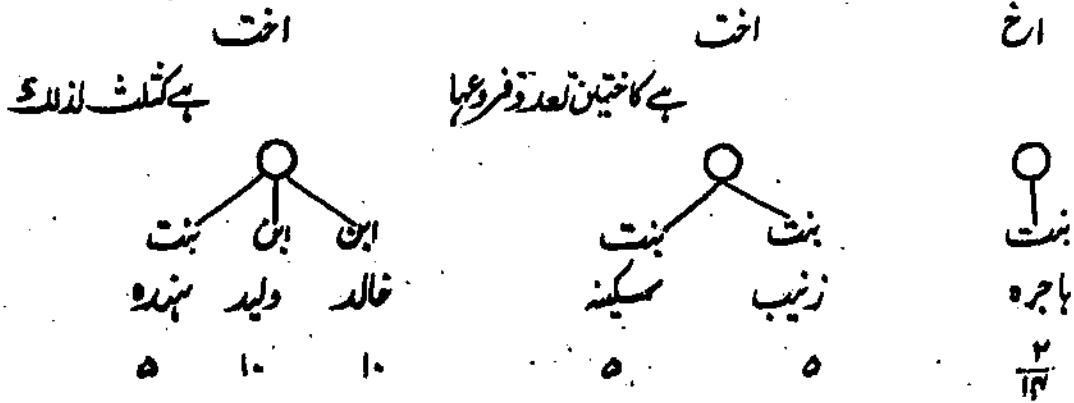 اخ اخت اخت
ہے کاختین تعدد فروعہا ہے کثلث لذلک
بنت بنت بنت ابن ابن بنت
ہاجرہ زنیب سکینہ خالد ولید ہندہ
۲ ۵ ۵ ۱۰ ۱۰ ۵
۱۴